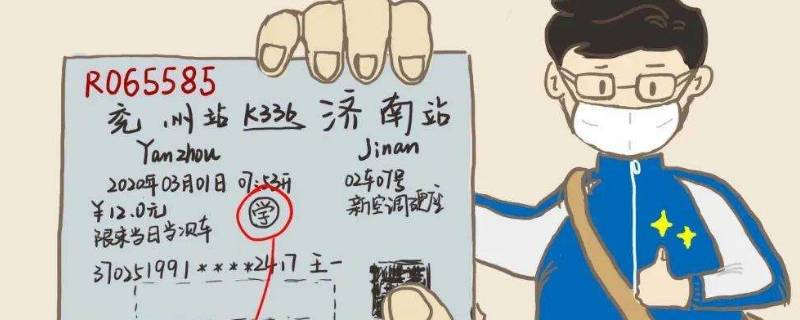 R065585
兖州站 K336 济南站
Yanzhou Jinan
2020年03月01日 07:53开 02车07号
¥12.0元 学 新空调硬座
限乘当日当次车
370251991****2417 王一